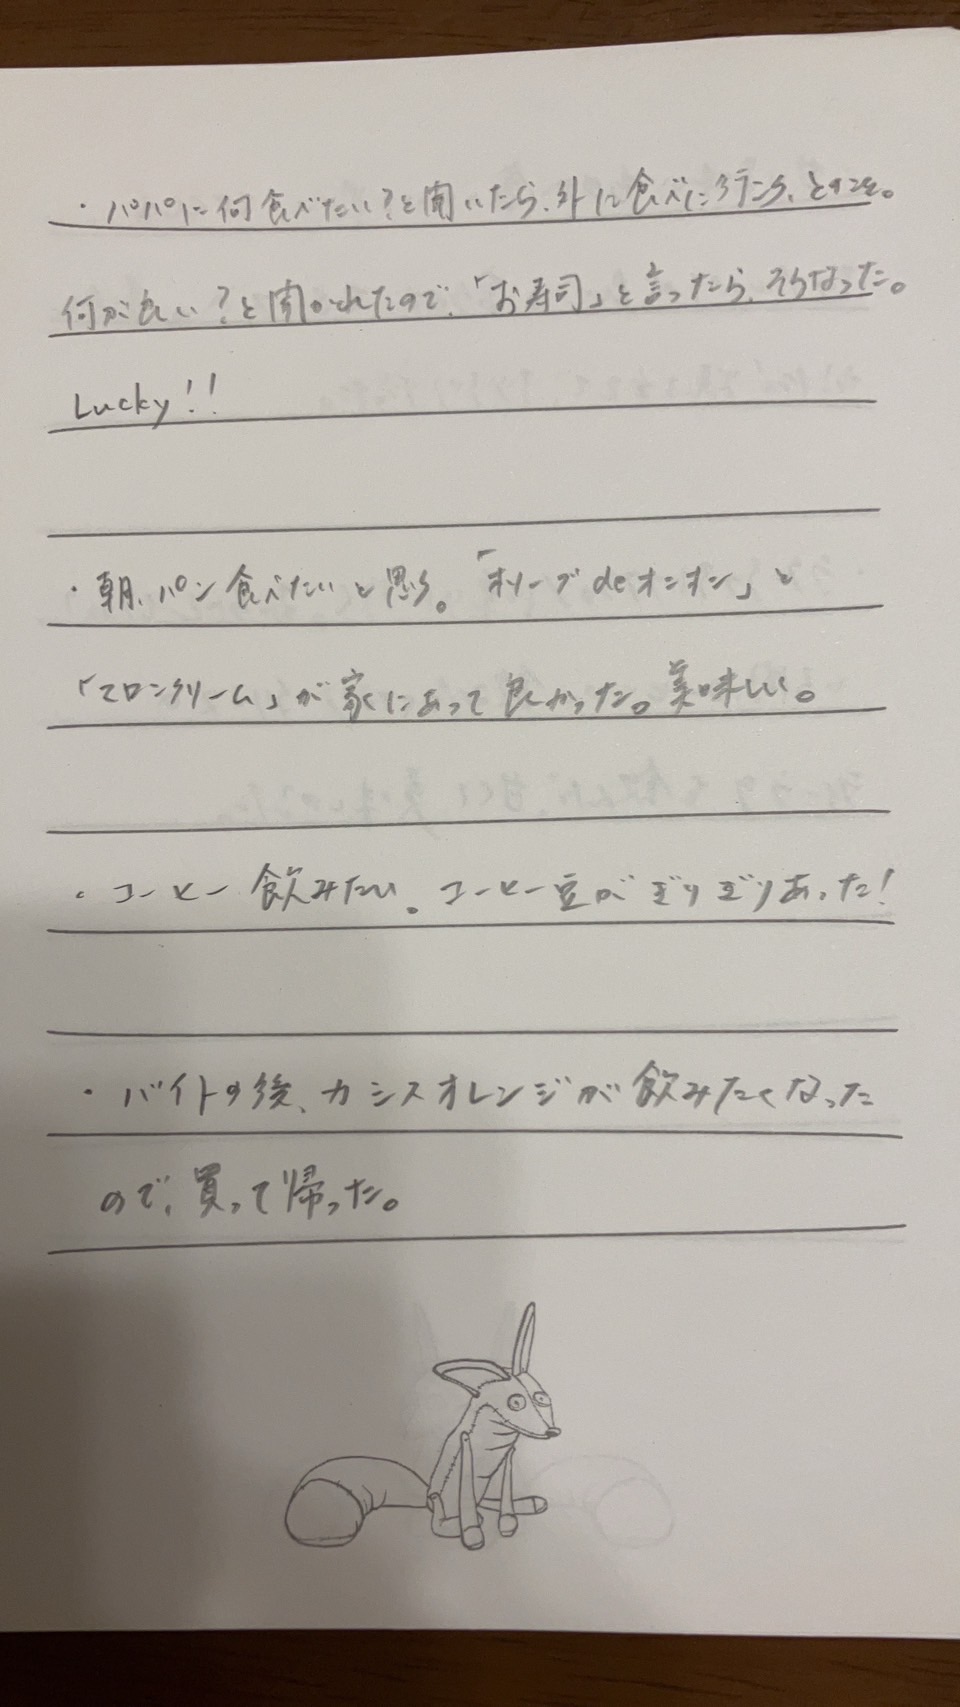 ・パパに何食べたい?と聞いたら、外に食べに行こう、とのこと。
何が良い?と聞かれたので、「お寿司」と言ったら、そうなった。
Lucky!!
・朝、パン食べたいと思う。「オリーブdeオニオン」と
「マロンクリーム」が家にあって良かった。美味しい。
・コーヒー飲みたい。コーヒー豆がぎりぎりあった!
・バイトの後、カシスオレンジが飲みたくなった
ので、買って帰った。